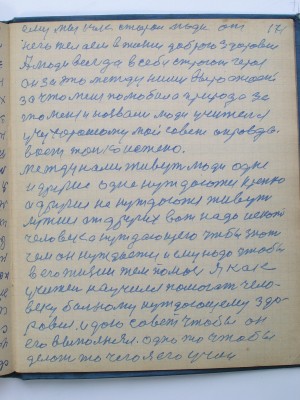 ему мы как старои люди от 171
него желаем в жизни доброго здоровия
А люди всегда в себе строют героя
он за это между ними
за что меня полюбила природа за
что меня и назвали люди учителем
учу хорошому мой совет оправда
вает только истено.
Между нами живут люди одне
и другие одне нуждаются
а другие не нуждаются живут
лутше от других вот надо искат
человека нуждающего чтобы знат
чем он нуждается и ему надо чтобы
в его жизни тем помоч Я как
учител научился помогат чело-
веку болному нуждающему здо-
ровия и даю совет чтобы он
его выполнял. одно то чтобы
делат то чего я его учил